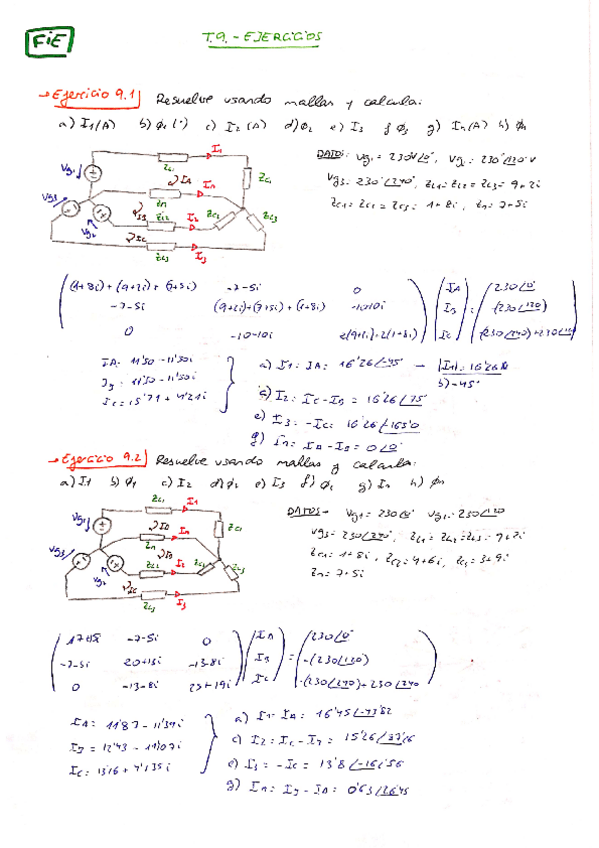 FiE
T.9.- EJERCICIOS
→ Ejercicio 9.1 Resuelve usando mallas y calcula:
a) I1(A) b) ϕ1(°) c) I2(A) d) ϕ2 e) I3 f) ϕ3 g) In(A) h) ϕn
DATOS: Vg1 = 230V∠0°, Vg2 = 230∠120° V
Vg3 = 230∠240°, ZL1 = ZL2 = ZL3 = 9+2i
Zc1 = Zc2 = Zc3 = 1+8i, Zn = 7+5i
(1+8i)+(9+2i)+(7+5i) -7-5i 0 IA 230∠0°
-7-5i (9+2i)+(7+5i)+(1+8i) -10-10i IB -(230∠120)
0 -10-10i 2(9+2i)+2(1+8i) IC -(230∠240)+230∠240
IA = 11'50 - 11'50i
IB = 11'50 - 11'50i
IC = 15'71 + 4'21i
a) I1 = IA = 16'26∠-45° → |I1| = 16'26A
b) -45°
c) I2 = IC - IB = 16'26∠75°
e) I3 = -IC = 16'26∠-165'0
g) In = IA - IB = 0∠0°
→ Ejercicio 9.2 Resuelve usando mallas y calcula:
a) I1 b) ϕ1 c) I2 d) ϕ2 e) I3 f) ϕ3 g) In h) ϕn
DATOS- Vg1 = 230∠0° Vg2 = 230∠120
Vg3 = 230∠240°, ZL1 = ZL2 = ZL3 = 9+2i
Zc1 = 1+8i, Zc2 = 4+6i, Zc3 = 3+9i
Zn = 7+5i
-7-5i 0 IA 230∠0°
-7-5i 20+13i -13-8i IB -(230∠120)
0 -13-8i 25+19i IC -(230∠240)+230∠240
IA = 11'87 - 11'39i
IB = 12'43 - 11'07i
IC = 13'16 + 4'135i
a) I1 = IA = 16'45∠-43'82
c) I2 = IC - IB = 15'26
e) I3 = -IC = 13'8∠-16
g) In = IB - IA = 0'63